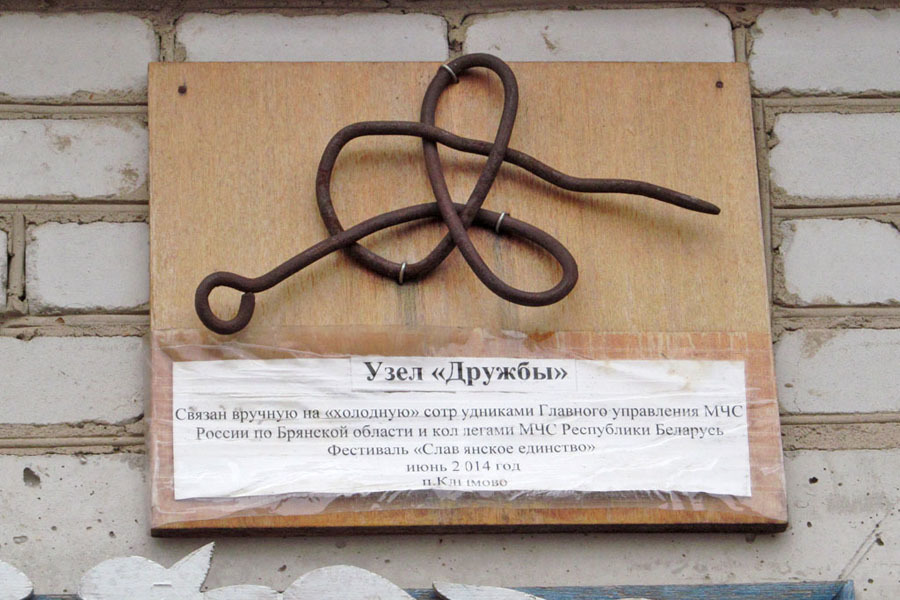 Узел «Дружбы»
Связан вручную на «холодную» сотрудниками Главного управления МЧС
России по Брянской области и коллегами МЧС Республики Беларусь
Фестиваль «Славянское единство»
июнь 2014 год
п.Климово